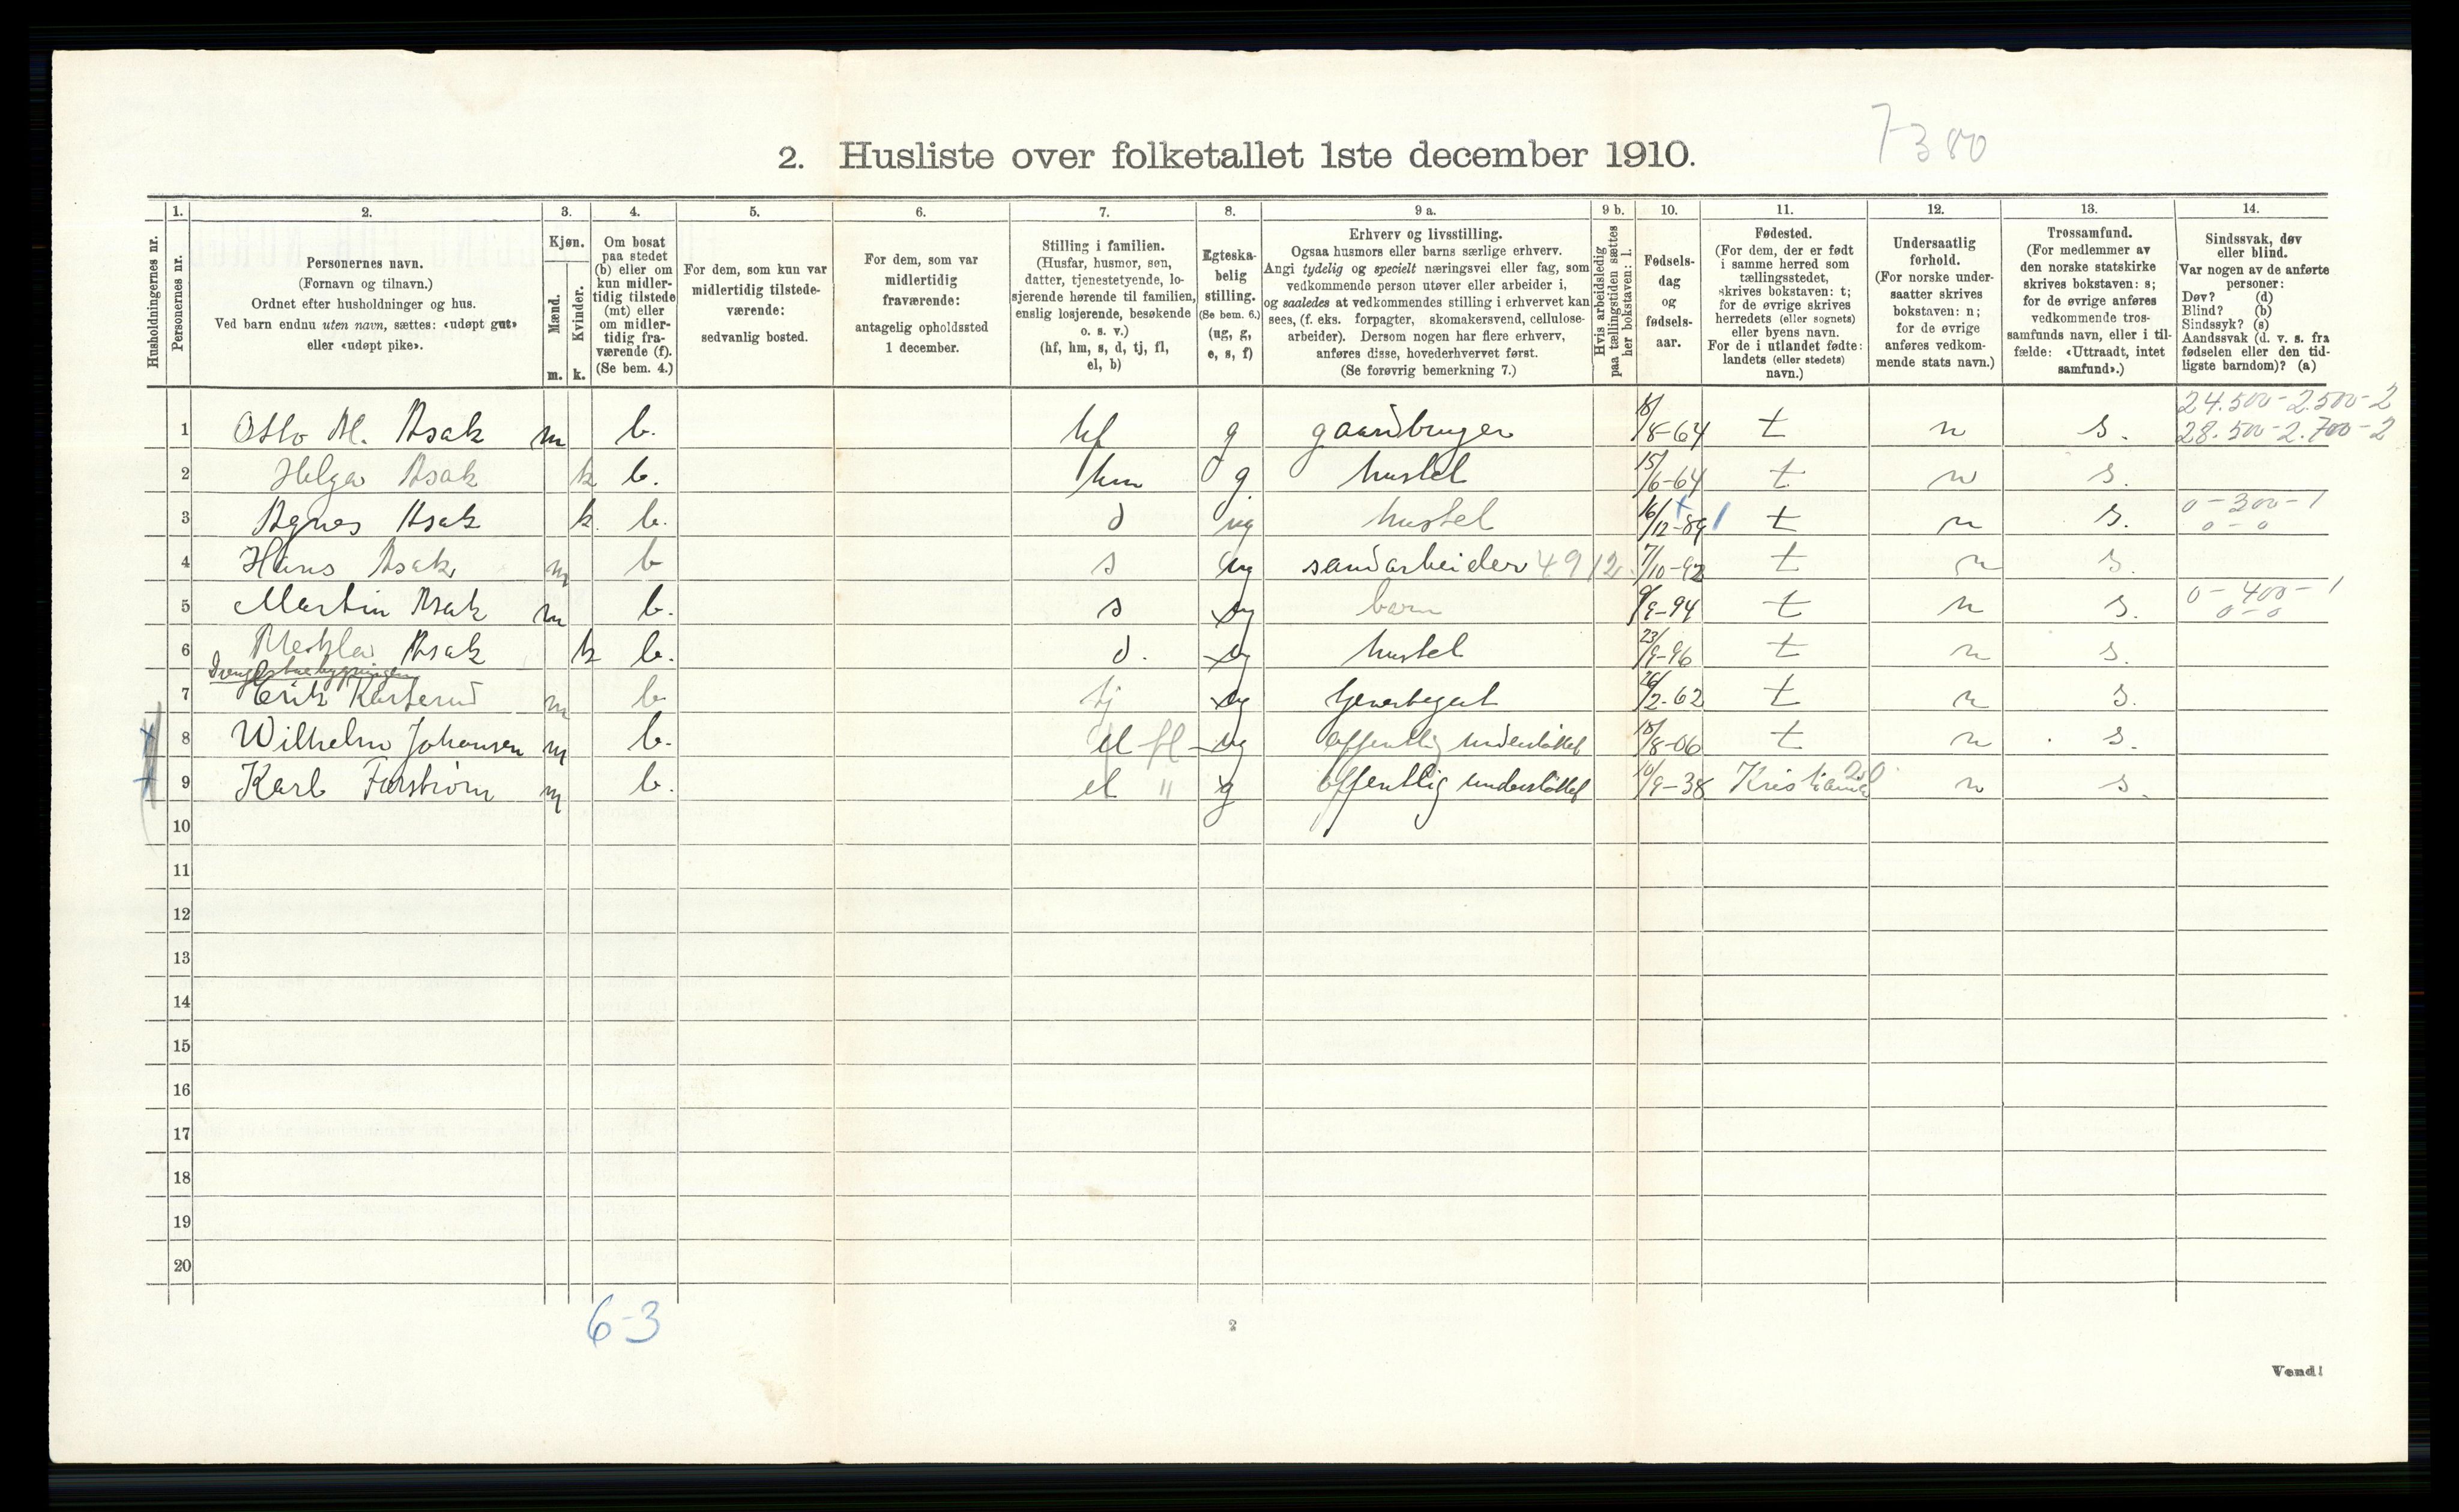 7380
2. Husliste over folketallet 1ste december 1910.
1. 2. 3. 4. 5. 6. 7. 8. 9 a. 9 b. 10. 11. 12. 13. 14.
Husholdningernes nr.
Personernes nr.
Personernes navn.
(Fornavn og tilnavn.)
Ordnet efter husholdninger og hus.
Ved barn endnu uten navn, sættes: «udøpt gut»
eller «udøpt pike».
Kjøn.
Mænd.
Kvinder.
m. k.
Om bosat
paa stedet
(b) eller om
kun midler-
tidig tilstede
(mt) eller
om midler-
tidig fra-
værende (f).
(Se bem. 4.)
For dem, som kun var
midlertidig tilstede-
værende:
sedvanlig bosted.
For dem, som var
midlertidig
fraværende:
antagelig opholdssted
1 december.
Stilling i familien.
(Husfar, husmor, søn,
datter, tjenestetyende, lo-
sjerende hørende til familien,
enslig losjerende, besøkende
o. s. v.)
(hf, hm, s, d, tj, fl,
el, b)
Egteska-
belig
stilling.
(Se bem. 6.)
(ug, g,
e, s, f)
Erhverv og livsstilling.
Ogsaa husmors eller barns særlige erhverv.
Angi tydelig og specielt næringsvei eller fag, som
vedkommende person utøver eller arbeider i,
og saaledes at vedkommendes stilling i erhvervet kan
sees, (f. eks. forpagter, skomakersvend, cellulose-
arbeider). Dersom nogen har flere erhverv,
anføres disse, hovederhvervet først.
(Se forøvrig bemerkning 7.)
Hvis arbeidsledig
paa tællingstiden sættes
her bokstaven: l.
Fødsels-
dag
og
fødsels-
aar.
Fødested.
(For dem, der er født
i samme herred som
tællingsstedet,
skrives bokstaven: t;
for de øvrige skrives
herredets (eller sognets)
eller byens navn.
For de i utlandet fødte:
landets (eller stedets)
navn.)
Undersaatlig
forhold.
(For norske under-
saatter skrives
bokstaven: n;
for de øvrige
anføres vedkom-
mende stats navn.)
Trossamfund.
(For medlemmer av
den norske statskirke
skrives bokstaven: s;
for de øvrige anføres
vedkommende tros-
samfunds navn, eller i til-
fælde: «Uttraadt, intet
samfund».)
Sindssvak, døv
eller blind.
Var nogen av de anførte
personer:
Døv? (d)
Blind? (b)
Sindssyk? (s)
Aandssvak (d. v. s. fra
fødselen eller den tid-
ligste barndom)? (a)
24.500-2.500-2
1 Otto M. Asak m b. hf g gaardbruger 18/8-64 t n s. 28.500-2.700-2
2 Helga Asak k b. hm g. hustel 15/6-64 t n s.
0-300-1
3 Agnes Asak k. b. d ug hustel 16/12-89 t n s. 0-0
4 Hans Asak m b s ug sandarbeider 4912. 7/10-92 t n s.
5 Martin Asak m b. s ug barn 9/9-94 t n s. 0-400-1
0-0
6 Asak k b. d. ug hustel 23/9-96 t n s.
7 Erik m b. tj ug 26/2-62 t n s.
8 Wilhelm Johansen m b. el fl ug offentlig understøttet 18/8-06 t n s.
9 Karl Forstrøm m b. el " g offentlig understøttet 10/9-38 Kristiania n s.
10
11
12
13
14
15
16
17
18
19
20
6-3
2
Vend!